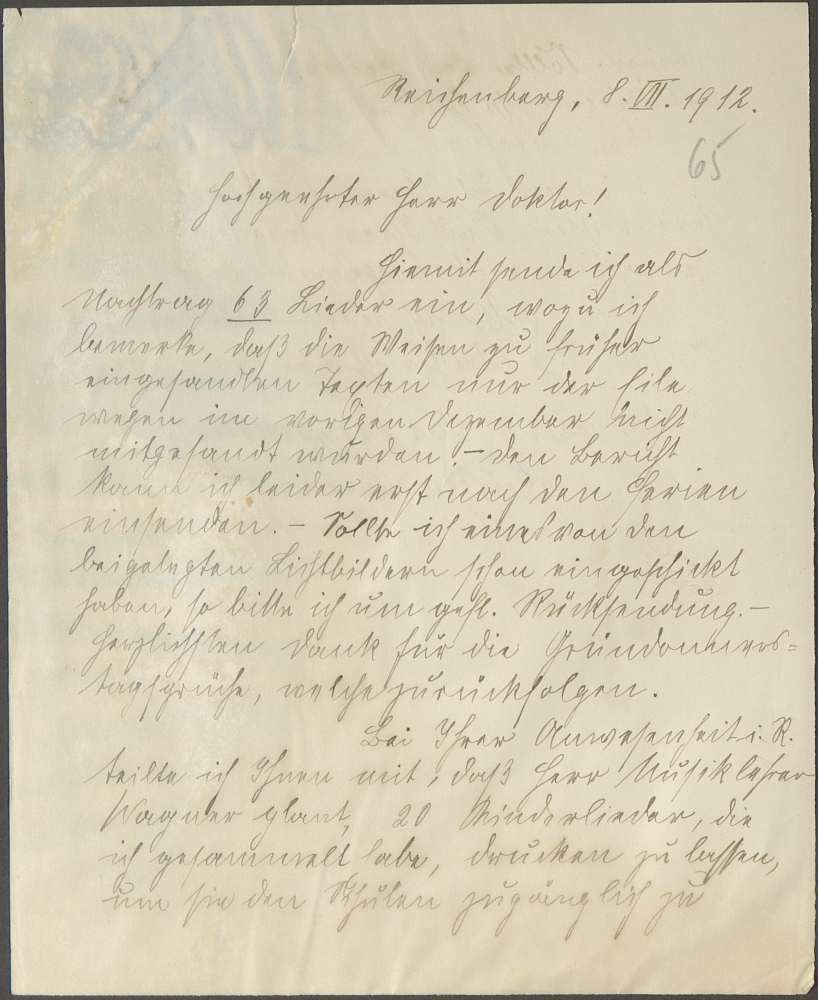 Reichenberg, 8. VII. 1912.
65
Hochgeehrter Herr Doktor!
Hiemit sende ich als
Nachtrag 63 Lieder ein, wozu ich
bemerke, daß die Weisen zu früher
eingesandten Texten nur der Eile
wegen im vorigen Dezember nicht
mitgesandt wurden. – Den Bericht
kann ich leider erst nach den Ferien
einsenden. – Sollte ich eines von den
beigelegten Lichtbildern schon eingeschickt
haben, so bitte ich um gefl. Rücksendung. –
Herzlichsten Dank für die Gründonners=
tagsprüche, welche zurückfolgen.
Bei Ihrer Anwesenheit i. R.
teilte ich Ihnen mit, daß Herr Musiklehrer
Wagner plant, 20 Kinderlieder, die
ich gesammelt habe, drucken zu lassen,
um sie den Schulen zugänglich zu